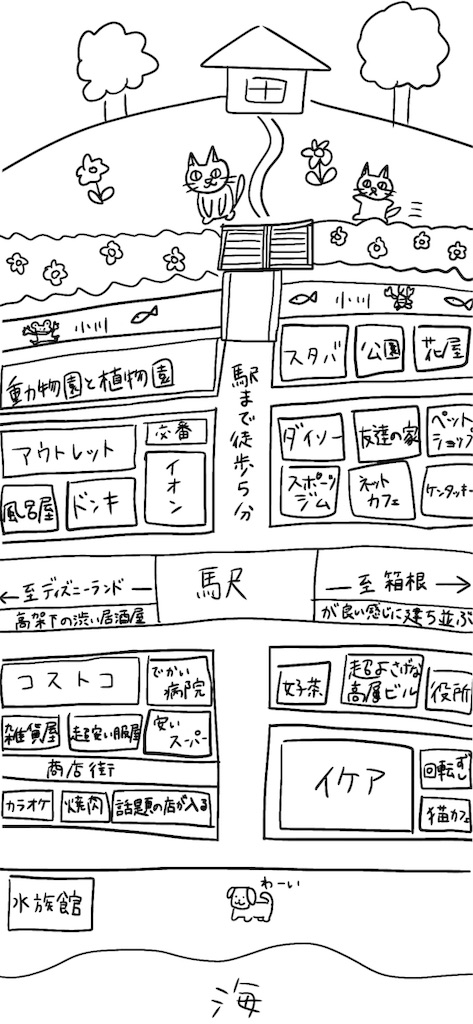 小川
小川
スタバ
公園
花屋
動物園と植物園
駅まで徒歩5分
アウトレット
交番
イオン
風呂屋
ドンキ
ダイソー
友達の家
ペット
ショップ
スポーツ
ジム
ネット
カフェ
ケンタッキー
←至ディズニーランド―
駅
―至 箱根→
高架下の渋い居酒屋
が良い感じに建ち並ぶ
コストコ
でかい
病院
雑貨屋
超安い服屋
安い
スーパー
商店街
カラオケ
焼肉
話題の店が入る
超よさげな
高層ビル
役所
イケア
回転ずし
猫カフェ
水族館
わーい
海